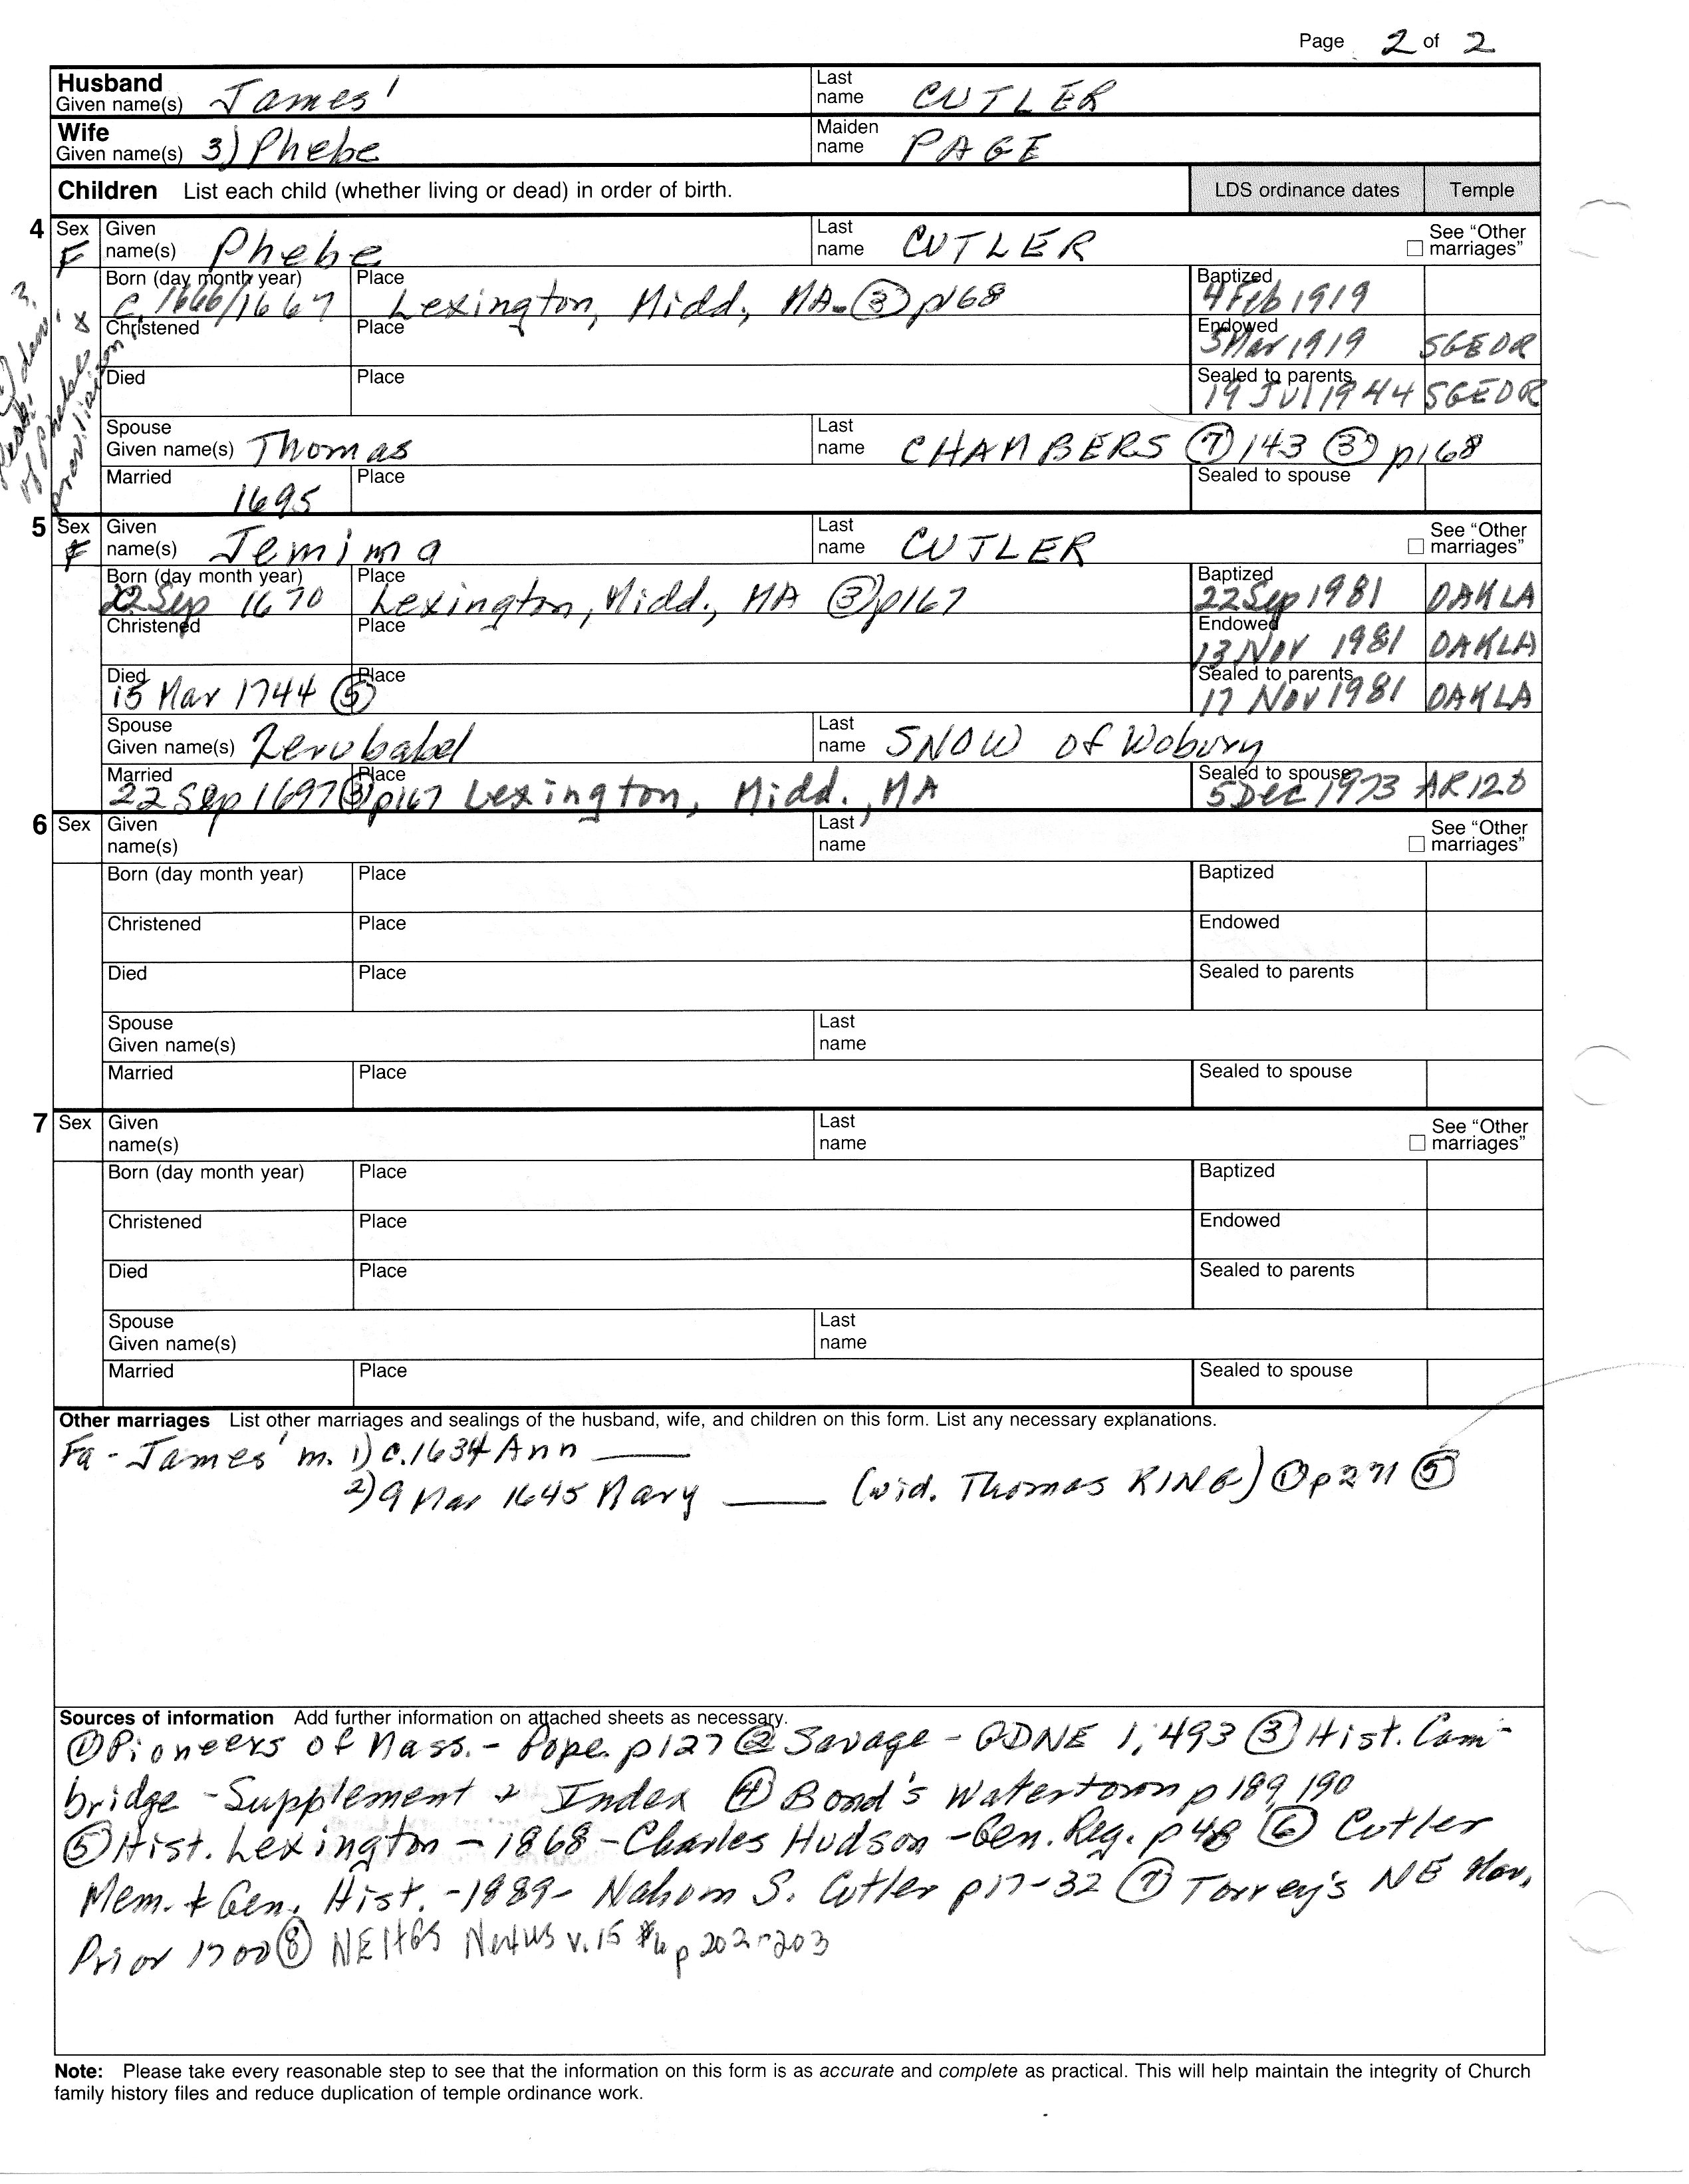 Page 2 of 2
Husband Given name(s) James' Last name CUTLER
Wife Given name(s) 3) Phebe Maiden name PAGE
Children List each child (whether living or dead) in order of birth. LDS ordinance dates Temple
4 Sex F Given name(s) Phebe Last name CUTLER See "Other marriages"
Born (day month year) c. 1666/1667 Place Lexington, Midd, MA. ③ p168 Baptized 4 Feb 1919
Christened Place Endowed 5 Mar 1919 SGEOR
Died Place Sealed to parents 19 Jul 1944 SGEOR
Spouse Given name(s) Thomas Last name CHAMBERS ⑦ 143 ③ p168
Married 1695 Place Sealed to spouse
of Phebe
5 Sex F Given name(s) Jemima Last name CUTLER See "Other marriages"
Born (day month year) 22 Sep 1670 Place Lexington, Midd., MA ③ p167 Baptized 22 Sep 1981 OAKLA
Christened Place Endowed 13 Nov 1981 OAKLA
Died 15 Mar 1744 ⑤ Place Sealed to parents 17 Nov 1981 OAKLA
Spouse Given name(s) Zerubabel Last name SNOW of Woburn
Married 22 Sep 1697 ③ p167 Place Lexington, Midd., MA Sealed to spouse 5 Dec 1973
6 Sex Given name(s) Last name See "Other marriages"
Born (day month year) Place Baptized
Christened Place Endowed
Died Place Sealed to parents
Spouse Given name(s) Last name
Married Place Sealed to spouse
7 Sex Given name(s) Last name See "Other marriages"
Born (day month year) Place Baptized
Christened Place Endowed
Died Place Sealed to parents
Spouse Given name(s) Last name
Married Place Sealed to spouse
Other marriages List other marriages and sealings of the husband, wife, and children on this form. List any necessary explanations.
Fa - James' m. 1) c. 1634 Ann ——
2) 9 Mar 1645 Mary —— (wid. Thomas KING) ① p271 ⑤
Sources of information Add further information on attached sheets as necessary.
① Pioneers of Mass. - Pope. p127 ② Savage - GDNE 1:493 ③ Hist. Cam-
bridge - Supplement + Index ④ Bond's Watertown p 189, 190
⑤ Hist. Lexington - 1868 - Charles Hudson - Gen. Reg. p 48 ⑥ Cutler
Mem. + Gen. Hist. - 1889 - Nahum S. Cutler p17-32 ⑦ Torrey's NE Mar.
Prior 1700 ⑧ NEHGS Nexus v. 15 #6 p 202-203
Note: Please take every reasonable step to see that the information on this form is as accurate and complete as practical. This will help maintain the integrity of Church
family history files and reduce duplication of temple ordinance work.